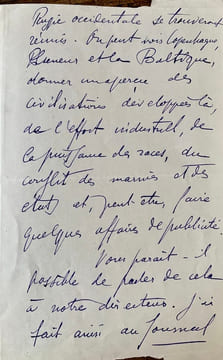 Russie occidentale se trouveront
réunis. On peut voir Copenhague,
Elseneur et la Baltique,
donner un aperçu des
civilisations développées là,
de l'effort industriel, de
la puissance des races, du
conflit des marines et des
états et, peut-être, faire
quelques affaires de publicité.
Vous paraît-il
possible de parler de cela
à notre directeur. J'ai
fait ainsi au Journal